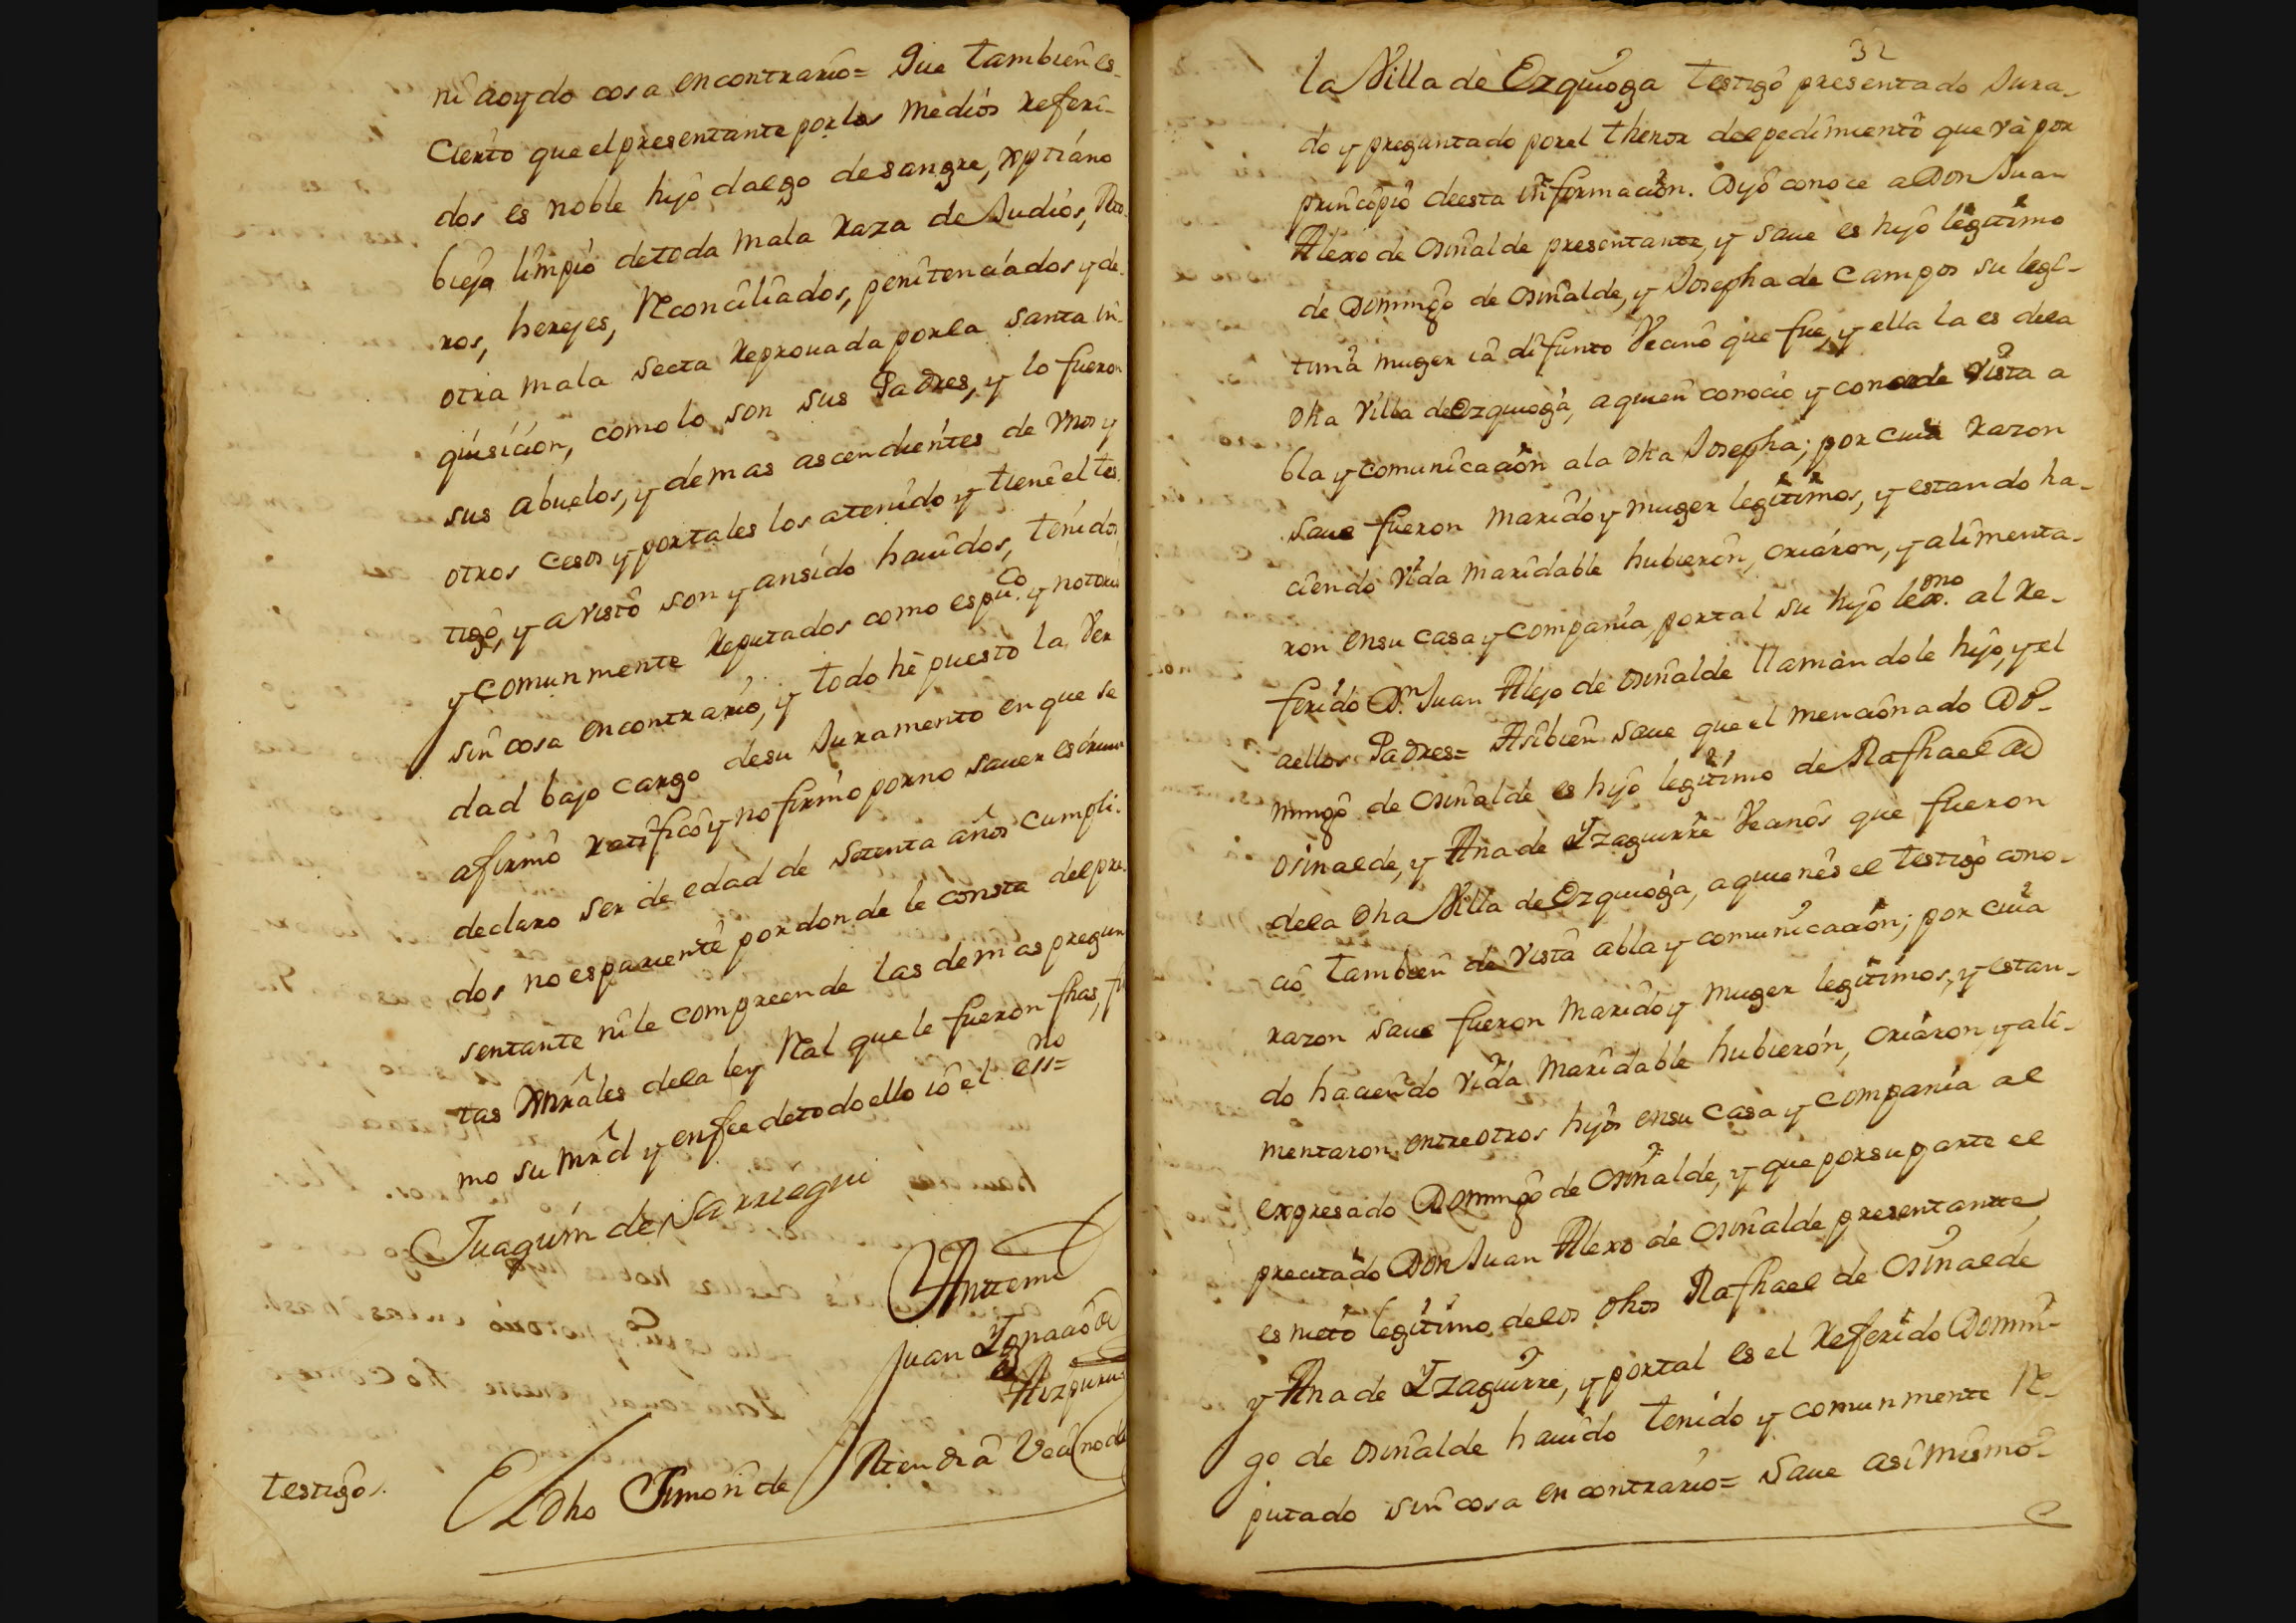 ni âoydo cosa encontrario= Que tambien es
Cierto que el presentante por los medios referi-
dos es noble hijo dalgo de sangre, xptiano
biejo limpio detoda mala raza de Judios, Mo
ros, herejes, Reconciliados, penitenciados y de
otra mala secta reprouada por la santa in-
quisicion, como lo son sus Padres, y lo fueron
sus abuelos, y demas ascendientes de vnos y
otros cesos y portales los atenido y tiene el tes
tigo, y a visto son y ansido hauidos, tenidos,
y comunmente reputados como es pu.co y notorio
sin cosa encontrario, y todo hè puesto la ver
dad bajo cargo desu Juramento en que se
afirmò ratificò y no firmo porno sauer escriuir
declaro ser de edad de setenta años cumpli-
dos no es pariente por donde le consta del pre-
sentante nile compreende las demas pregun
tas Xnrâles dela ley Real que le fueron fhas, fir
mo su mrd y enfee detodo ello iô el essno=
Juaquin de Sarriegui
Antemi
Juan Ygnacio de
Aizpuru
testigo. El Dho Simon de Atendra Vecino de
32
la Villa de Ezquioga testigo presentado Jura-
do y preguntado porel thenor deel pedimiento que và por
principio deesta informacion. Dijo conoce a Don Juan
Alexo de Osinalde presentante, y saue es hijo legitimo
de Domingo de Osinalde, y Josepha de Campos su legi-
tima muger iâ difunto Vecino que fue, y ella la es dela
Dha Villa de Ezquioga, aquien conocio y conoce de vista a
bla y comunicacion ala Dha Josepha; por cuia razon
saue fueron marido y muger legitimos, y estando ha-
ciendo vida maridable hubieron, criaron, y alimenta-
ron ensu casa y compania, portal su hijo lexmo. al re-
ferido Dn. Juan Alejo de Osinalde llamandole hijo, y el
aellos Padres= Asibien saue que el mencionado Do-
mingo de Osinalde es hijo legitimo de Rafhael de
Osinalde, y Ana de Yzaguirre Vecinos que fueron
dela Dha Villa de Ezquioga, aquienes el testigo cono-
cio tambien de vista abla y comunicacion; por cuia
razon saue fueron marido y muger legitimos, y estan-
do haciendo vida maridable hubieron, criaron y ali-
mentaron entre otros hijos ensu casa y compania al
expresado Domingo de Osinalde, y que porsu parte el
precitado Don Juan Alexo de Osinalde presentante,
es nieto legitimo delos Dhos Rafhael de Osinalde
y Ana de Yzaguirre, y portal es el referido Domin-
go de Osinalde hauido tenido y comunmente Re-
putado sin cosa en contrario= Saue asi mismo